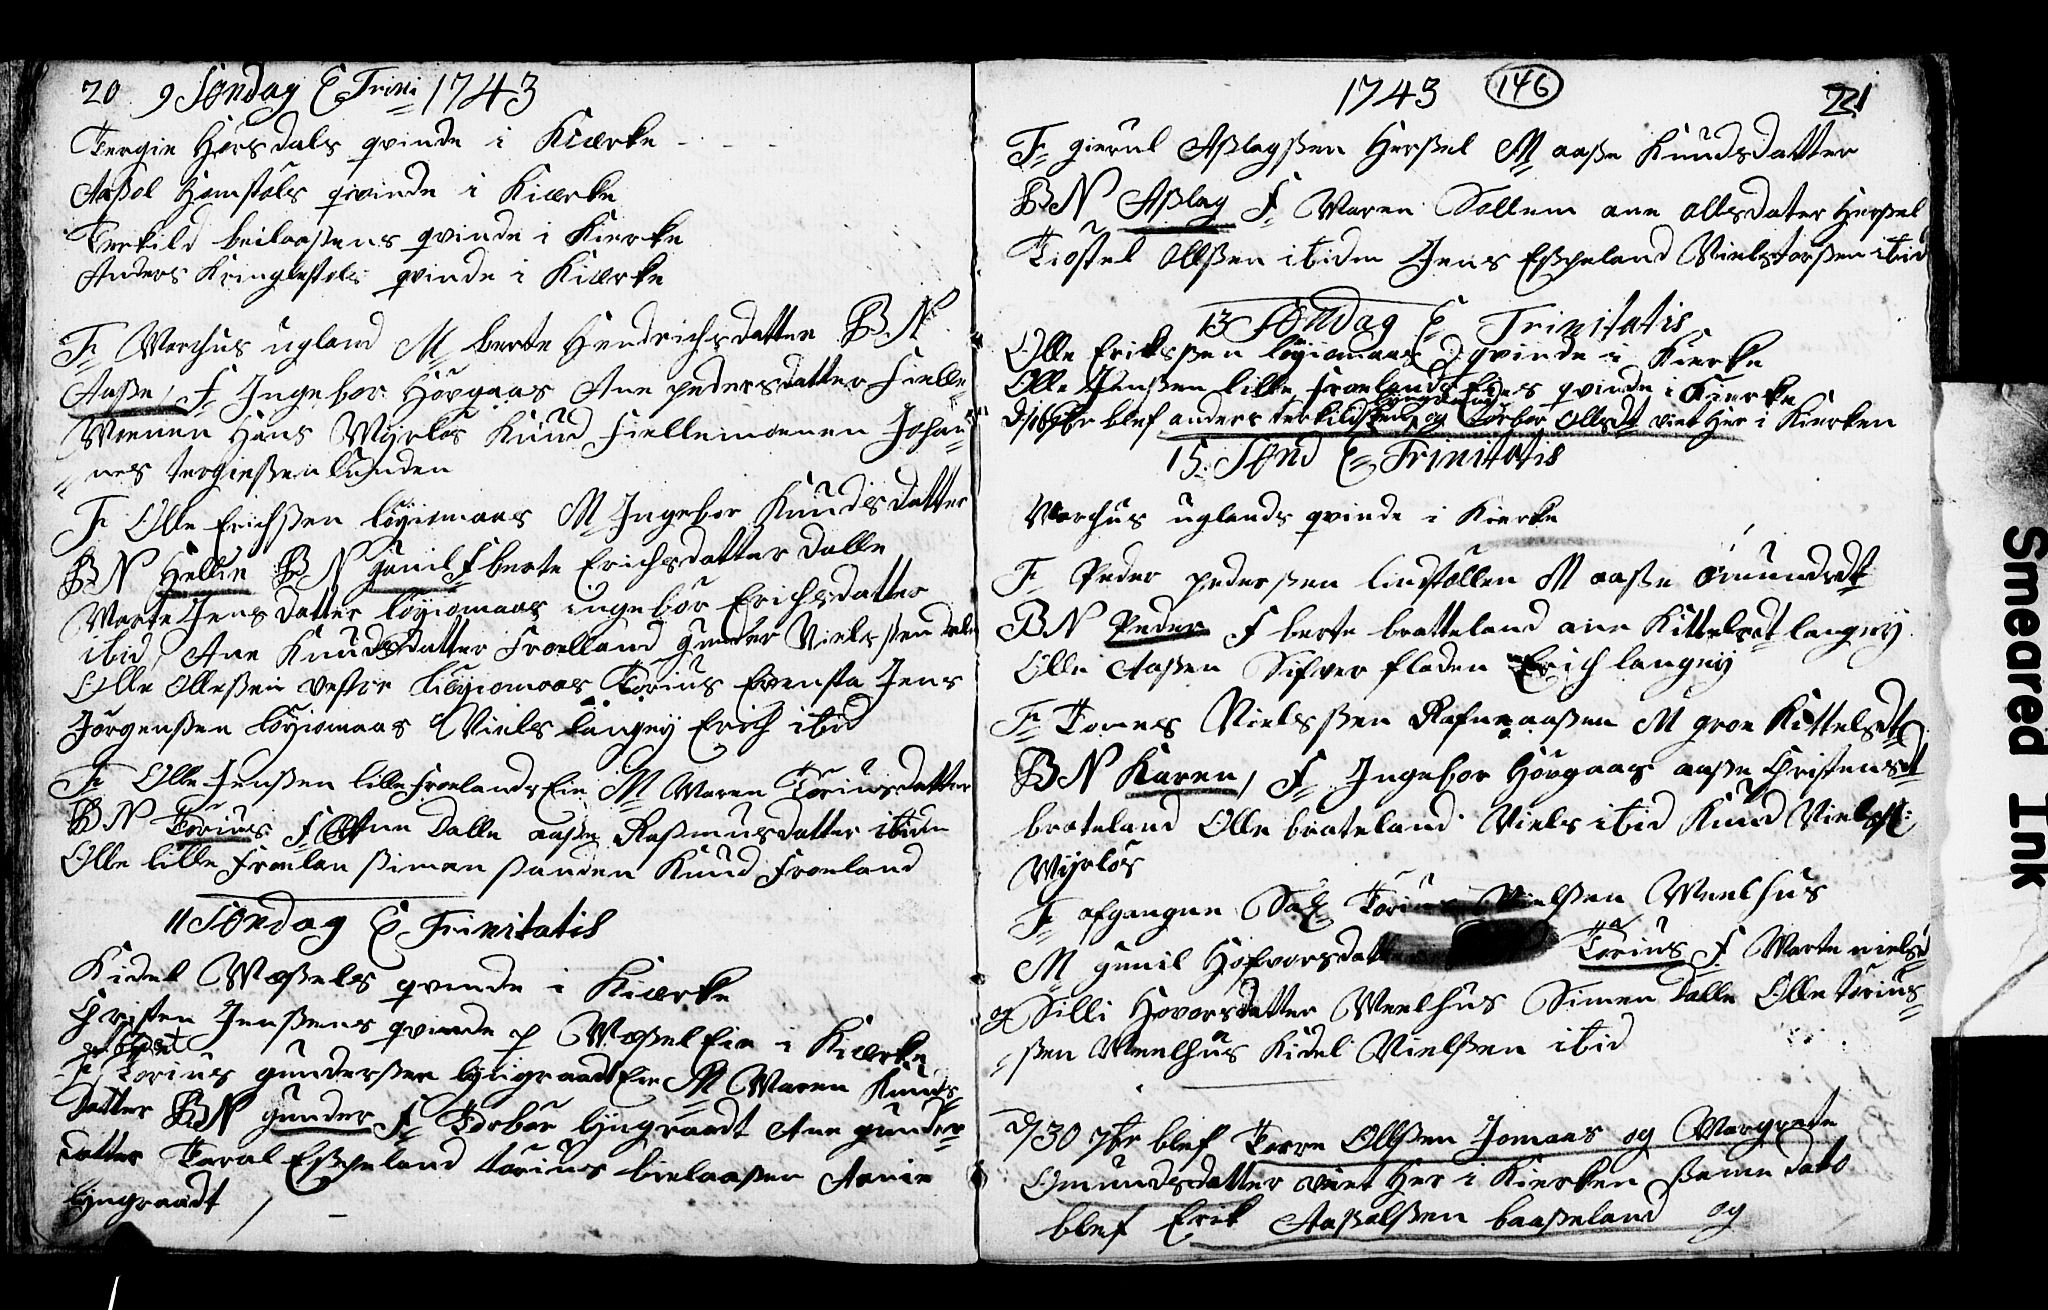 20 9 Søndag E Trini 1743
Tergie Hørsdals qvinde i Kiærke - - -
Aaßol Homstøls qvinde i Kiærke
Terkild beilaaßens qvinde i Kierke
Anders Kringlestøls qvinde i Kiærke
F Marchus ugland M berte Hendrichsdatter BN
Aaße, F Ingebor Høvgaas Ane pedersdatter Fielle
Moenen Hans Myrløs Knud Fiellemoenen Johan
nes tergießen lunden
F Olle Erichßen løyiomaas M Ingebor Knudsdatter
BN Hellie BN gunil F berte Erichsdatter Dalle
Marte Jensdatter løyiomaas ingebor Erichsdatter
ibid, Ane Knudsdatter Froelland gunder Nielsßen Dale
Olle Olleßen vestre løyiomaas Torius Evensta Jens
Jørgenßen løyiomaas Niels langey Erich ibid
F Olle Jenßen lille Froelands Eie M Maren Toriusdatter
BN Torius F Ane Dalle aaße Raßmusdatter ibidm
Olle lille Froelan ßimen ßanden Knud Froeland
11 Søndag E Trinitatis
Kidel Moßels qvinde i Kiærke
Christen Jenßens qvinde p Moßel Eie i Kiærke
F Torius gunderßen lyngraadt Eie M Maren Knuds
datter BN gunder F Torbor lyngraadt Ane gunder
datter Taral Eßcheland torius bielaaßen Aanie
lyngraadt
1743 146 221
F gierul Aßlagßen Herßel M aaße Knudsdatter
BN Aßlag F Maren Sollem ane ollsdater Herßel
Tiostel Ollßen ibidm Jens Eßcheland Niels torßen ibid
13 Søndag E Trinitatis
Olle Eriksßen løyiomaas qvinde i Kierke
Olle Jenßen lille Froelands Eies qvinde i Kierke
D 16 7br blef anders terkildßen og torbor Ollsdt viet Her i Kierken
15 Sønd E Trinitatis
Marchus uglands qvinde i Kierke
F Peder pederßen lindtøllen M aaße Omundsdt
BN Peder F berte bratteland ane Kittelsdt langey
Olle Aaßen Sifver floden Erich langey
F Tomes Nielsßen Rafneaaßen M groe Kittelsdt
BN Karen, F Ingebor Høvgaas aaße Christensdt
brateland Olle brateland Niels ibid Knud Niels
Myrløs
F afgangne Sal Torius Nielßen Neelhus
M gunil Hofvorsdatt Torius F Marte nielsd
og Silli Hovorsdatter Neelhus Simen Dalle Olle torius
ßen Neelhus Kidel Nielßen ibid
D 30 7br blef Terre Ollßen Jomaas og Margrete
Omundsdatter viet Her i Kierken ßame dato
blef Erik Aaßolßen baaßeland og
Smeared Ink